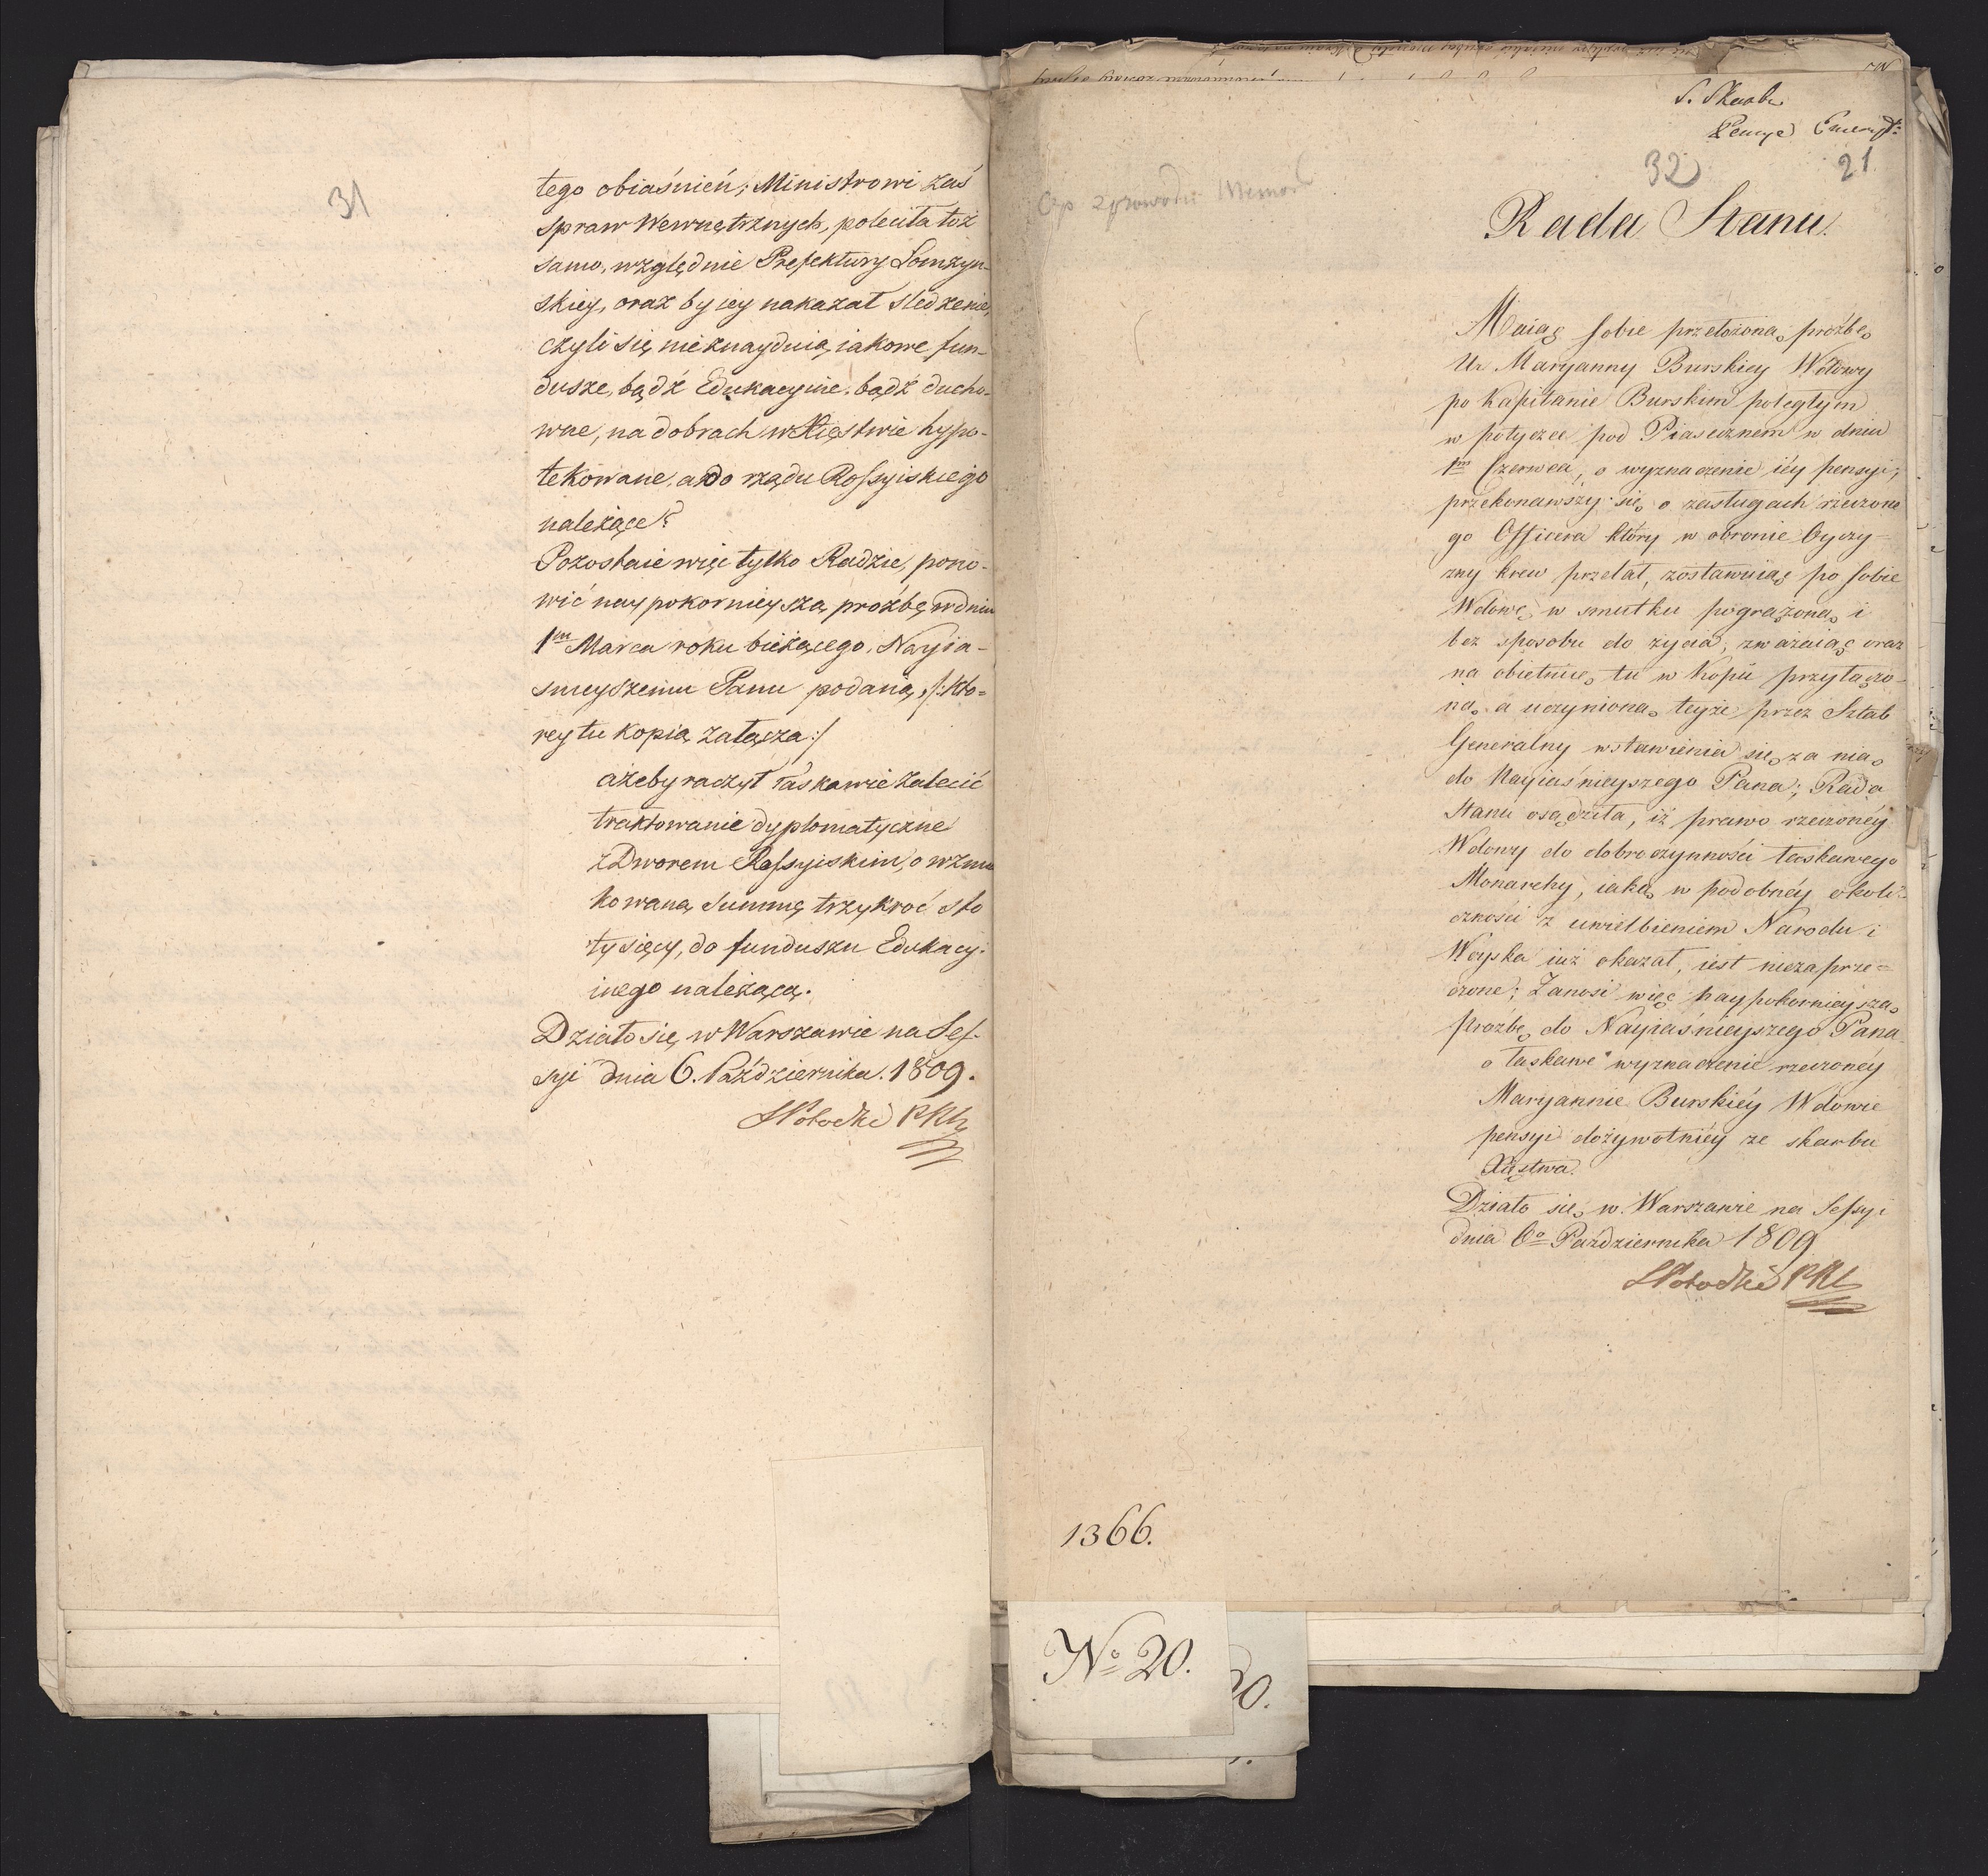 31
tego obiaśnień; Ministrowi zaś
spraw Wewnętrznych, poleciła toż
samo, względnie Prefektury Łomżyn-
skiey, oraz by iey nakazał sledzenie,
czyli się nie znayduią iakowe fun-
dusze, bądź Edukacyine, bądź ducho-
wne, na dobrach w Xięstwie hypo-
tekowane, a do rządu Rossyiskiego
należące?
Pozostaie więc tylko Radzie, pono-
wić naypokornieyszą proźbę w dniu
1m Marca roku bieżącego, Nayia-
śnieyszemu Panu podaną, /: któ=
rey tu kopią załącza :/
ażeby raczył łaskawie zalecić
traktowanie dyplomatyczne
z Dworem Rossyiskim, o wzmian
kowaną Summę trzykroć sto
tysięcy, do funduszu Edukacy-
inego należącą.
Działo się w Warszawie na Ses-
syi dnia 6. Października. 1809.
S Potocki PRS
S. Skarbu
Pensye Emeryt:
32 21
Rada Stanu.
Maiąc sobie przełożoną proźbę
Ur Maryanny Burskiey Wdowy
po Kapitanie Burskim poległym
w potyczce pod Piasecznem w dniu
1m Czerwca, o wyznaczenie iéy pensyi;
przekonawszy się o zasługach rzeczone
go Officera który w obronie Oyczy-
zny krew przelał, zostawuiąc po sobie
Wdowę w smutku pogrążoną i
bez sposobu do życia, zważaiąc oraz
na obietnicę tu w kopii przyłączo-
ną a uczynioną teyże przez Sztab
Generalny wstawienia się za nią
do Nayiaśnieyszego Pana; Rada
Stanu osądziła, iż prawo rzeczonéy
Wdowy do dobroczynności łaskawego
Monarchy, iaką w podobnéy okoli-
czności z uwielbieniem Narodu i
Woyska iuż okazał, iest niezaprze=
czone; Zanosi więc naypokornieyszą
proźbę do Nayiaśnieyszego Pana
o łaskawe wyznaczenie rzeczonéy
Maryannie Burskiéy Wdowie
pensyi dożywotniéy ze skarbu
Xięstwa.
Działo się w Warszawie na Sessyi
dnia 6o Października 1809
S Potocki PRS
1366.
No 20.
20.